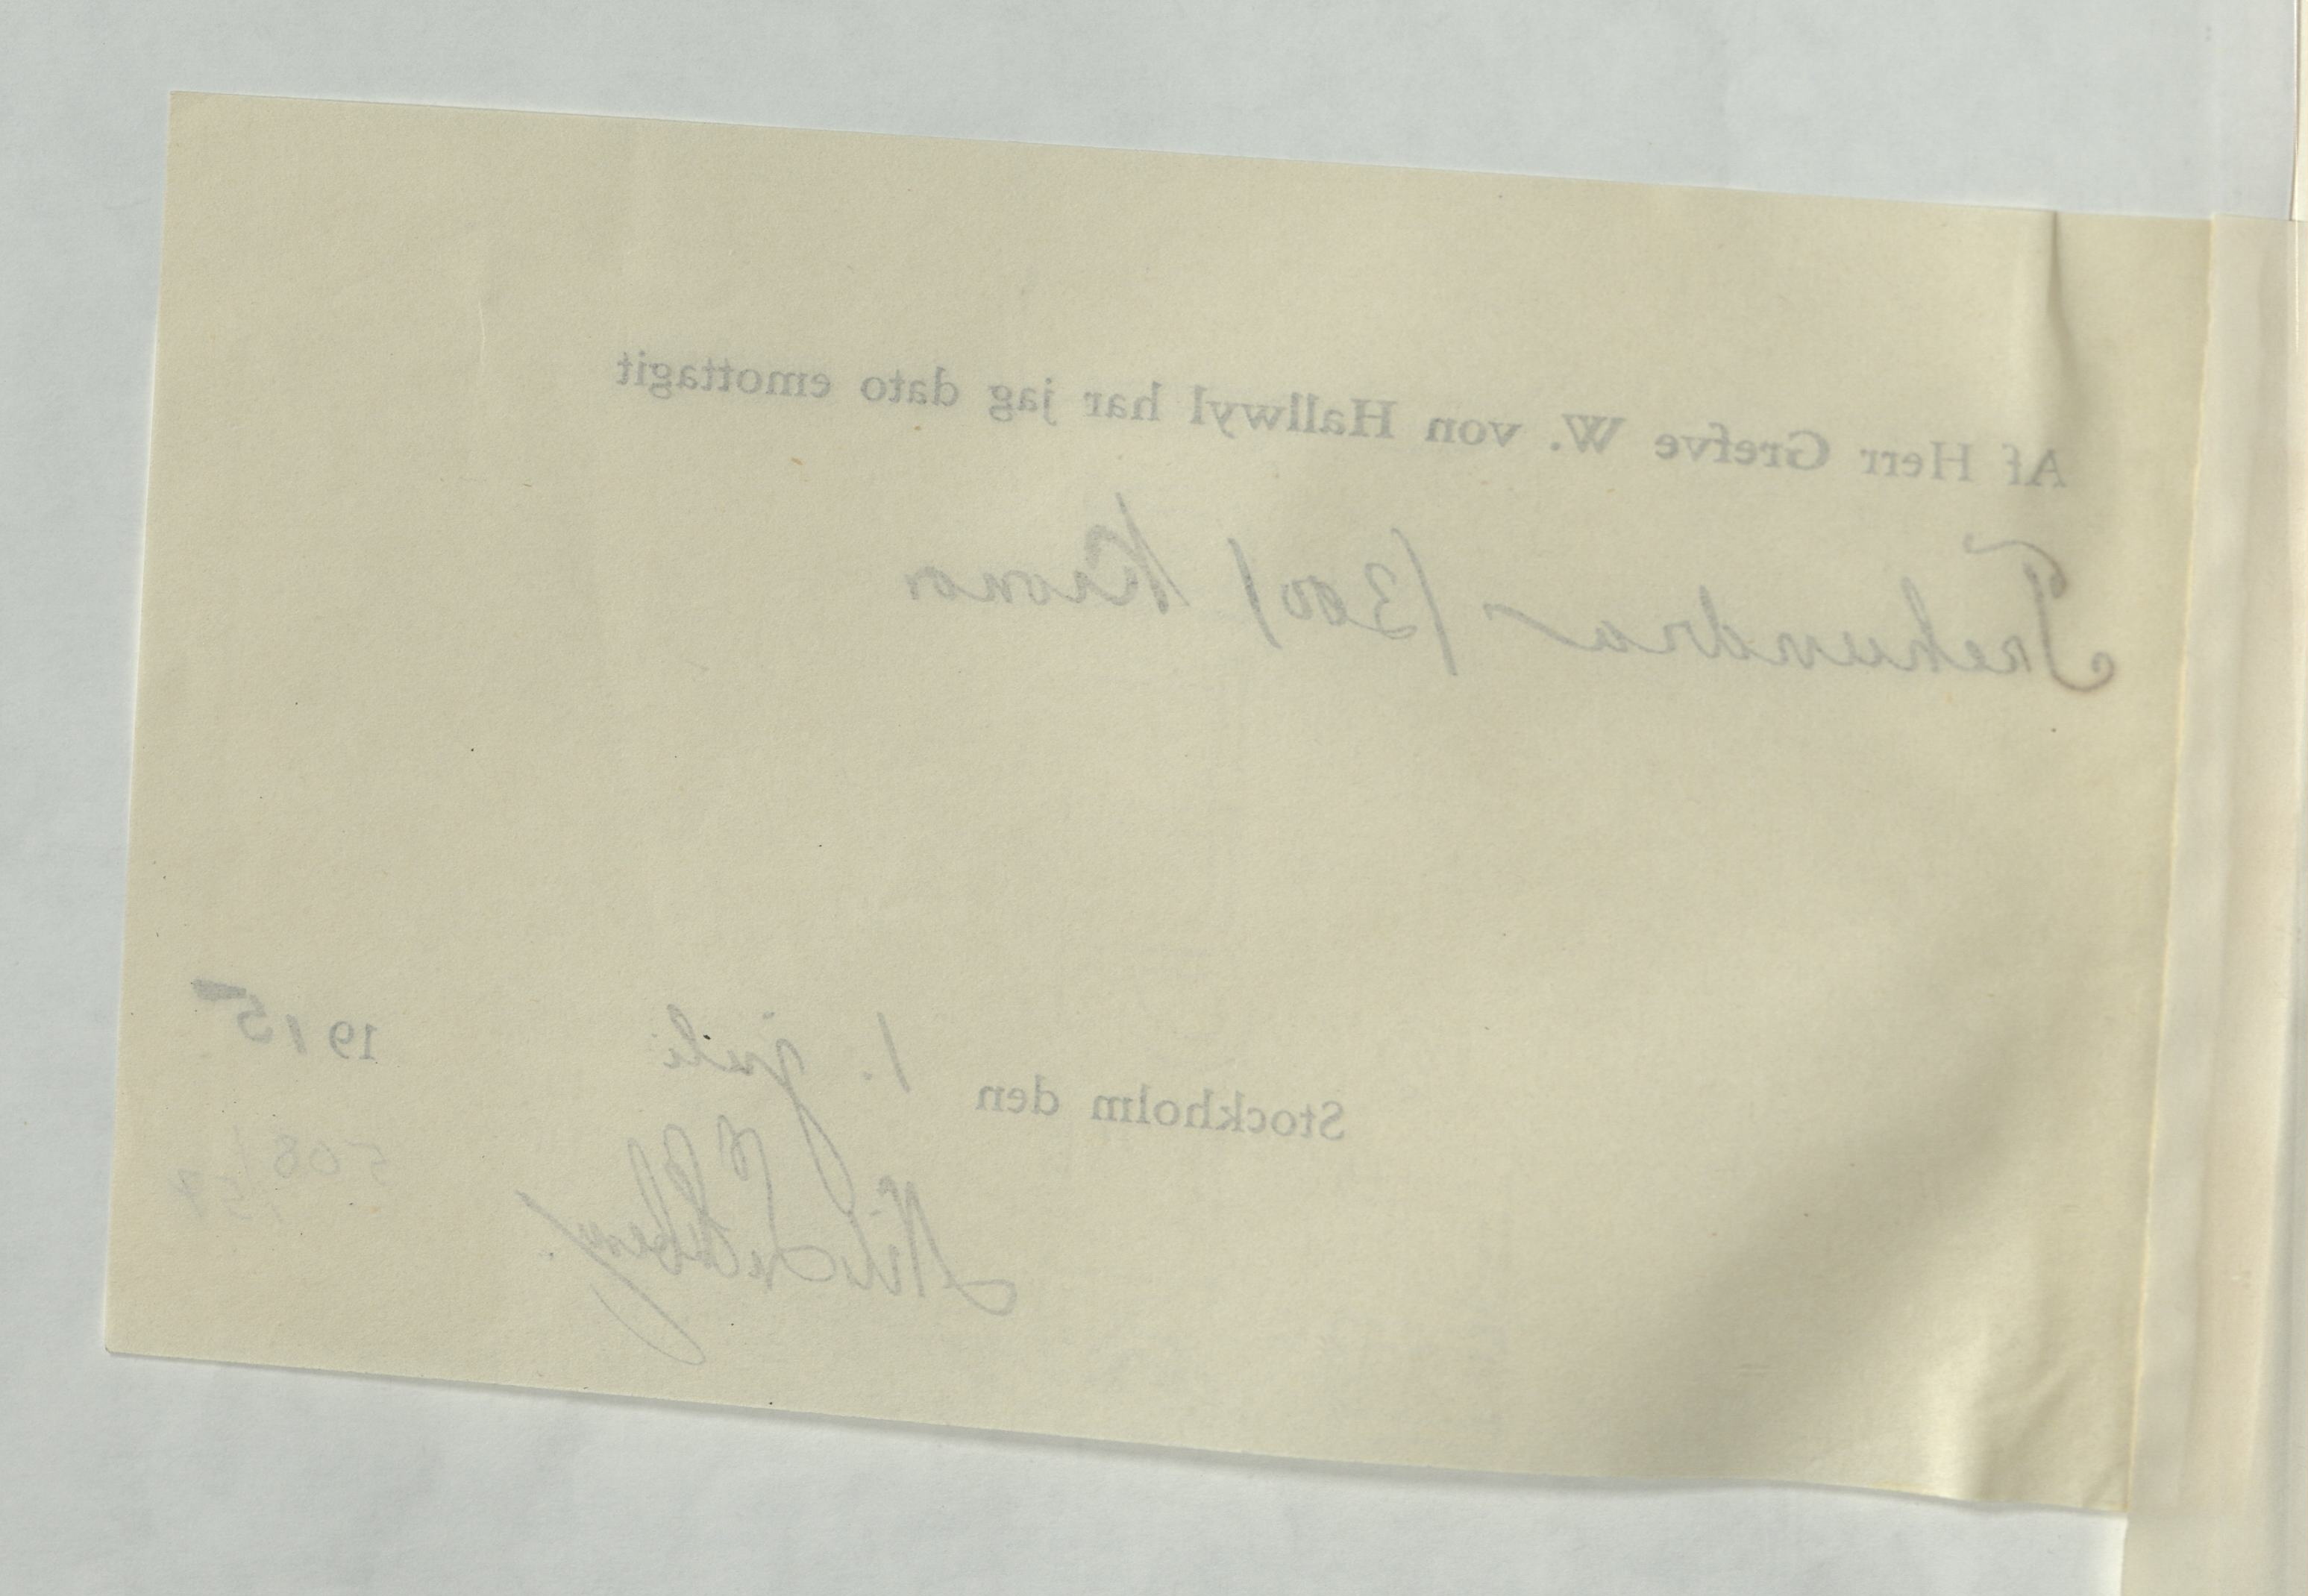 Af Herr Grefve W. von Hallwyl har jag dato emottagit
Trehundra /300/ Kronor
Stockholm den 1. juli 1915
Nils
508/